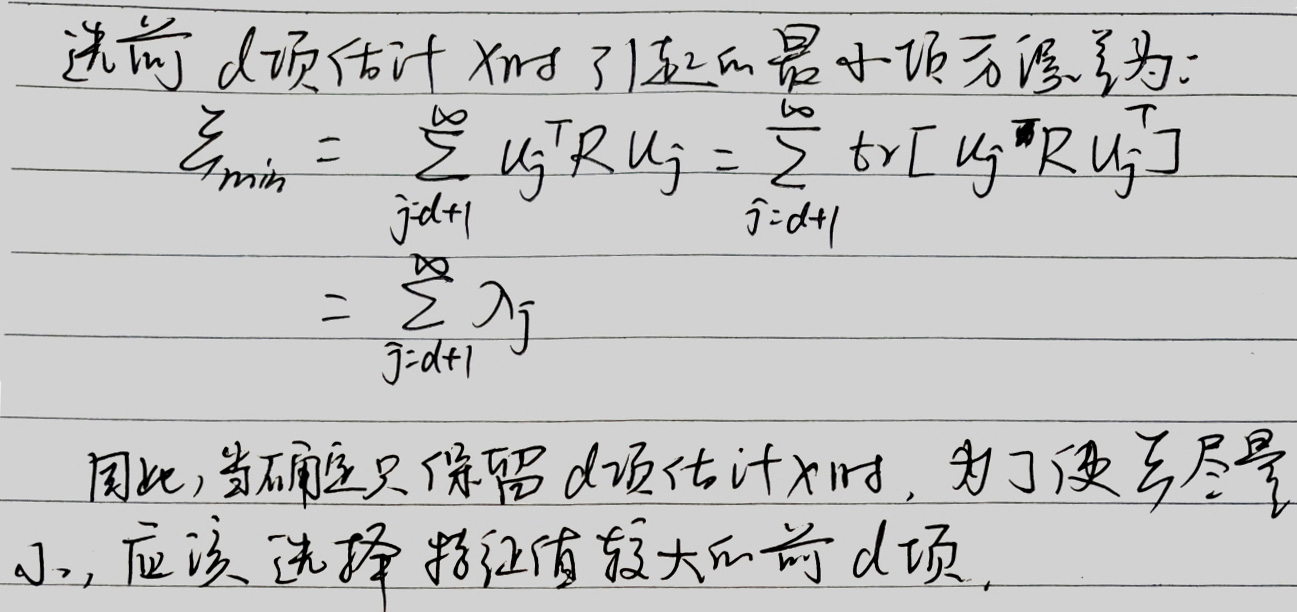 选前d项估计x时引起的最小项方误差为:
ξmin = ∑_{j=d+1}^{∞} u_j^T R u_j = ∑_{j=d+1}^{∞} tr[u_j R u_j^T]
= ∑_{j=d+1}^{∞} λ_j
因此,当确定只保留d项估计x时,为了使ξ尽量
小,应该选择特征值较大的前d项.